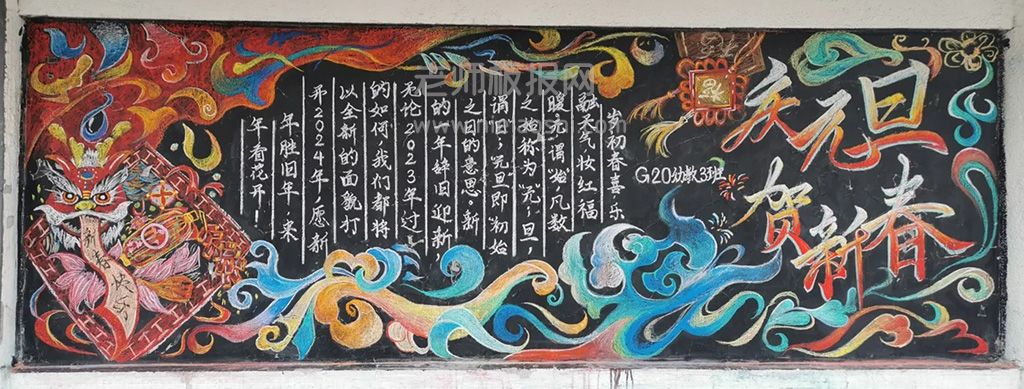 庆元旦
贺新春
G20幼教3班
岁初春喜，乐
融天气妆红福
暖。元谓始，凡数
之始称为“元”；旦，
谓日；元旦即初始
之日的意思。新
的一年辞旧迎新，
无论2023年过
的如何，我们都将
以全新的面貌打
开2024年，愿新
年胜旧年，来
年看花开！
快乐
老师板报网